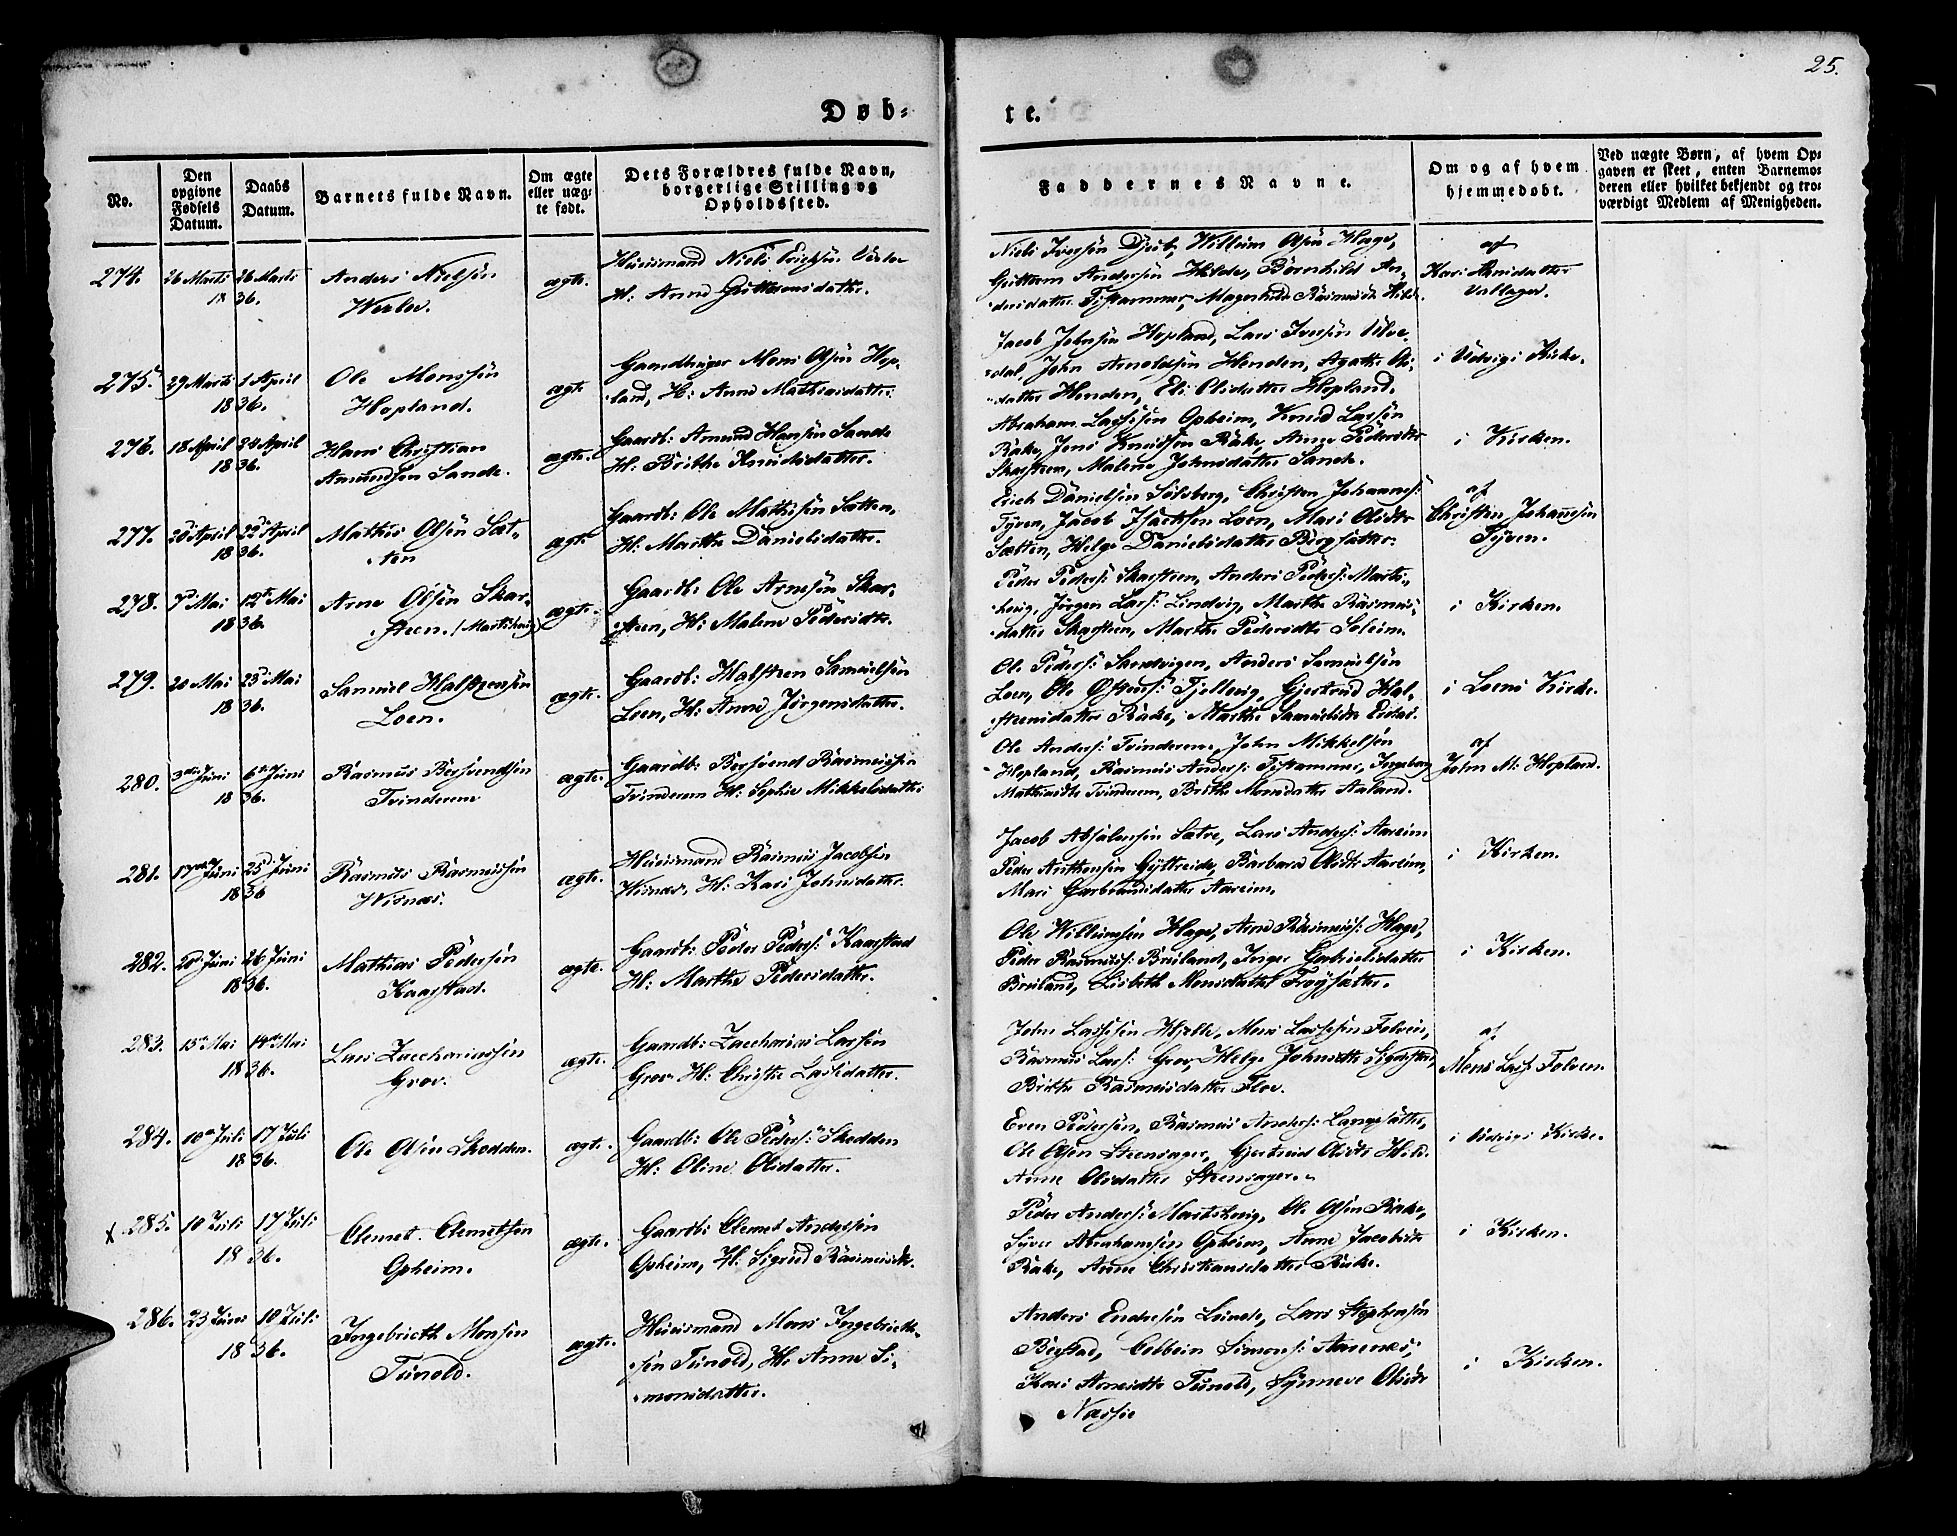 25.
Døb-
te.
No.
Den opgivne Fødsels Datum.
Daabs Datum.
Barnets fulde Navn.
Om ægte eller uægte født.
Dets Forældres fulde Navn, borgerlige Stilling og Opholdssted.
Faddernes Navne.
Om og af hvem hjemmedøbt.
Ved uægte Børn, af hvem Opgaven er skeet, enten Barnemoderen eller hvilket bekjendt og troværdigt Medlem af Menigheden.
274. 26 Marts 26 Marts
1836.
Anders Nielsen
ægte.
Huusmand Niels Erichsen
H: Anne Guttormsdatter.
Niels Iversen Willum Olsen Hage,
Guttorm Andersen Hilde, Børnhild An-
dersdatter Tistammer, Rasmusdt Hilde.
af
Kari Arnsdatter
275. 29 Marts 1 April
1836.
Ole Monssen
Hopland.
ægte
Gaardbruger Mons Olsen Hop-
land, H: Anne Mathiasdatter.
Jacob Johnsen Hopland, Lars Iversen Ulve-
dal, John Arnoldsen Henden, Agathe Ols-
datter Henden, Eli Olsdatter Hopland.
i Utvigs Kirke.
276. 18 April 24 April
1836.
Hans Christian
Amundsen Sande.
ægte.
Gaardb: Amund Hansen Sande
H: Brithe Knudsdatter.
Abraham Lassesen Opheim, Knud Larsen
Rake, Jens Knudsen Rake, Anne Pedersdtr
Skarsteen, Malene Johnsdatter Sande.
i Kirken.
277. 20 April 22 April
1836.
Mathis Olsen Sæt-
ten
ægte
Gaardb: Ole Mathisen Sætten,
H: Marthe Danielsdatter.
Erich Danielsen Solsberg, Christen Johannes:
Tyven, Jacob Isacksen Loen, Mari Olsdtr
Sætten, Helge Danielsdatter Bergsætter.
af
Christen Johannesen
Tyven.
278. 7 Mai 12te Mai
1836.
Arne Olsen Skar-
steen. (Martshevig)
ægte.
Gaardb: Ole Arnesen Skar-
steen, H: Malene Pedersdtr.
Peder Peders: Skarsteen, Anders Peders: Marts-
hevig, Jørgen Lars: Lindvig, Marthe Rasmus-
datter Skarsteen, Marthe Pedersdtr Soleim.
i Kirken.
279. 20 Mai 23 Mai
1836.
Samuel Halsteensen
Loen.
ægte.
Gaardb: Halsteen Samuelsen
Loen, H: Anne Jørgensdatter.
Ole Peders: Sandvigen, Anders Samuelsen
Loen, Ole Østens: Tjellevig, Gjertrud Hal-
steensdatter Rake, Marthe Samuelsdtr
i Loens Kirke.
280. 3die Juni 6te Juni
1836.
Rasmus Bersvendsen
Tvinderem
ægte.
Gaardb: Bersvend Rasmussen
Tvinderem H: Sophie Mikkelsdatter
Ole Anders: Tvinderem, John Mikkelsen
Hopland, Rasmus Anders: Tistammer, Ingeborg
Mathisdtr Tvinderem, Brithe Monsdatter Aaland.
af
John M: Hopland.
281. 17de Juni 25 Juni
1836
Rasmus Rasmussen
Wisnæs.
ægte.
Huusmand Rasmus Jacobsen
Wisnæs, H: Kari Johnsdatter.
Jacob Absalonsen Sætre, Lars Anders: Aareim
Peder Anthonsen Gyttreide, Barbara Olsdtr Aareim,
Mari Garbrandsdatter Aareim.
i Kirken.
282. 20 Juni 26 Juni
1836.
Mathias Pedersen
Kaarstad.
ægte.
Gaardb: Peder Peders: Kaarstad
H: Marthe Pedersdatter.
Ole Willumsen Hage, Arne Rasmus: Hage,
Peder Rasmus: Bruland, Inger Gabrielsdatter
Bruland, Lisbeth Monsdatter Frøysæter.
i Kirken.
283. 13 Mai 14de Mai
1836.
Lars Zacchariassen
Grov.
ægte.
Gaardb: Zaccharias Larsen
Grov H: Christi Lassedatter.
John Lassesen Hjelle, Mons Lassesen Folven,
Rasmus Lars: Grov, Helge Johnsdtr
Brithe Rasmusdatter Floe.
af
Mons Lass: Folven.
284. 10de Juli 17 Juli
1836.
Ole Olsen Skodden.
ægte.
Gaardb: Ole Peders: Skodden
H: Oline Olsdatter.
Even Pedersen, Rasmus Anders: Langsæter,
Ole Olsen Steensager, Gjertrud Olsdtr Hild.
Anne Olsdatter Steensager.
i Utvigs Kirke.
x 285. 10 Juli 17 Juli
1836.
Clemet Clemetsen
Opheim.
ægte.
Gaardb: Clemet Andersen
Opheim, H: Sigrid Rasmusdtr.
Peder Anders: Martshevig, Ole Olsen Rake,
Siver Abrahamsen Opheim, Anne Jacobsdtr
Rake, Anne Christiansdatter Rake.
i Kirken.
286. 23 Juni 10 Juli
1836.
Ingebrigth Monsen
Tunold.
ægte.
Huusmand Mons Ingebrigth-
sen Tunold, H: Anne Si-
monsdatter.
Anders Endresen Lunde, Lars Stephensen
Colbein Simons: Aarnes,
Kari Arnesdtr Tunold, Synneve Olsdtr
i Kirken.